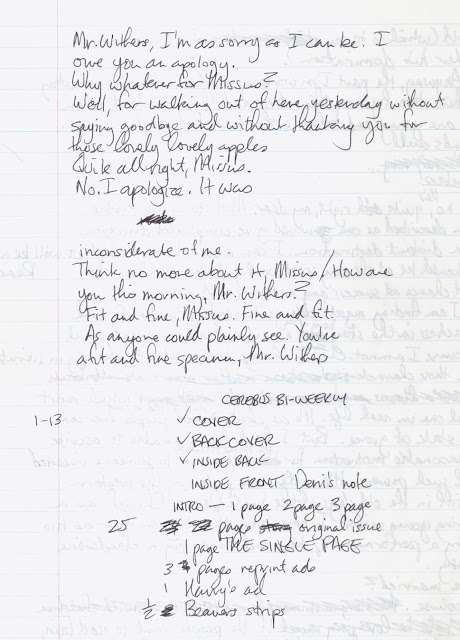 Mr. Withers, I'm as sorry as I can be. I
owe you an apology.
Why whatever for Missus?
Well, for walking out of here yesterday without
saying goodbye and without thanking you for
those lovely lovely apples
Quite all right, Missus.
No. I apologize. It was
inconsiderate of me.
Think no more about it, Missus / How are
you this morning, Mr. Withers?
Fit and fine, Missus. Fine and fit.
As anyone could plainly see. You're
a fit and fine specimen, Mr. Withers
CEREBUS BI-WEEKLY
1-13 ✓ COVER
✓ BACKCOVER
✓ INSIDE BACK
INSIDE FRONT Deni's note
INTRO — 1 page 2 page 3 page
25 pages original issue
1 page THE SINGLE PAGE
3 pages reprint ads
1 Harry's ad
1/2 Beavers strips